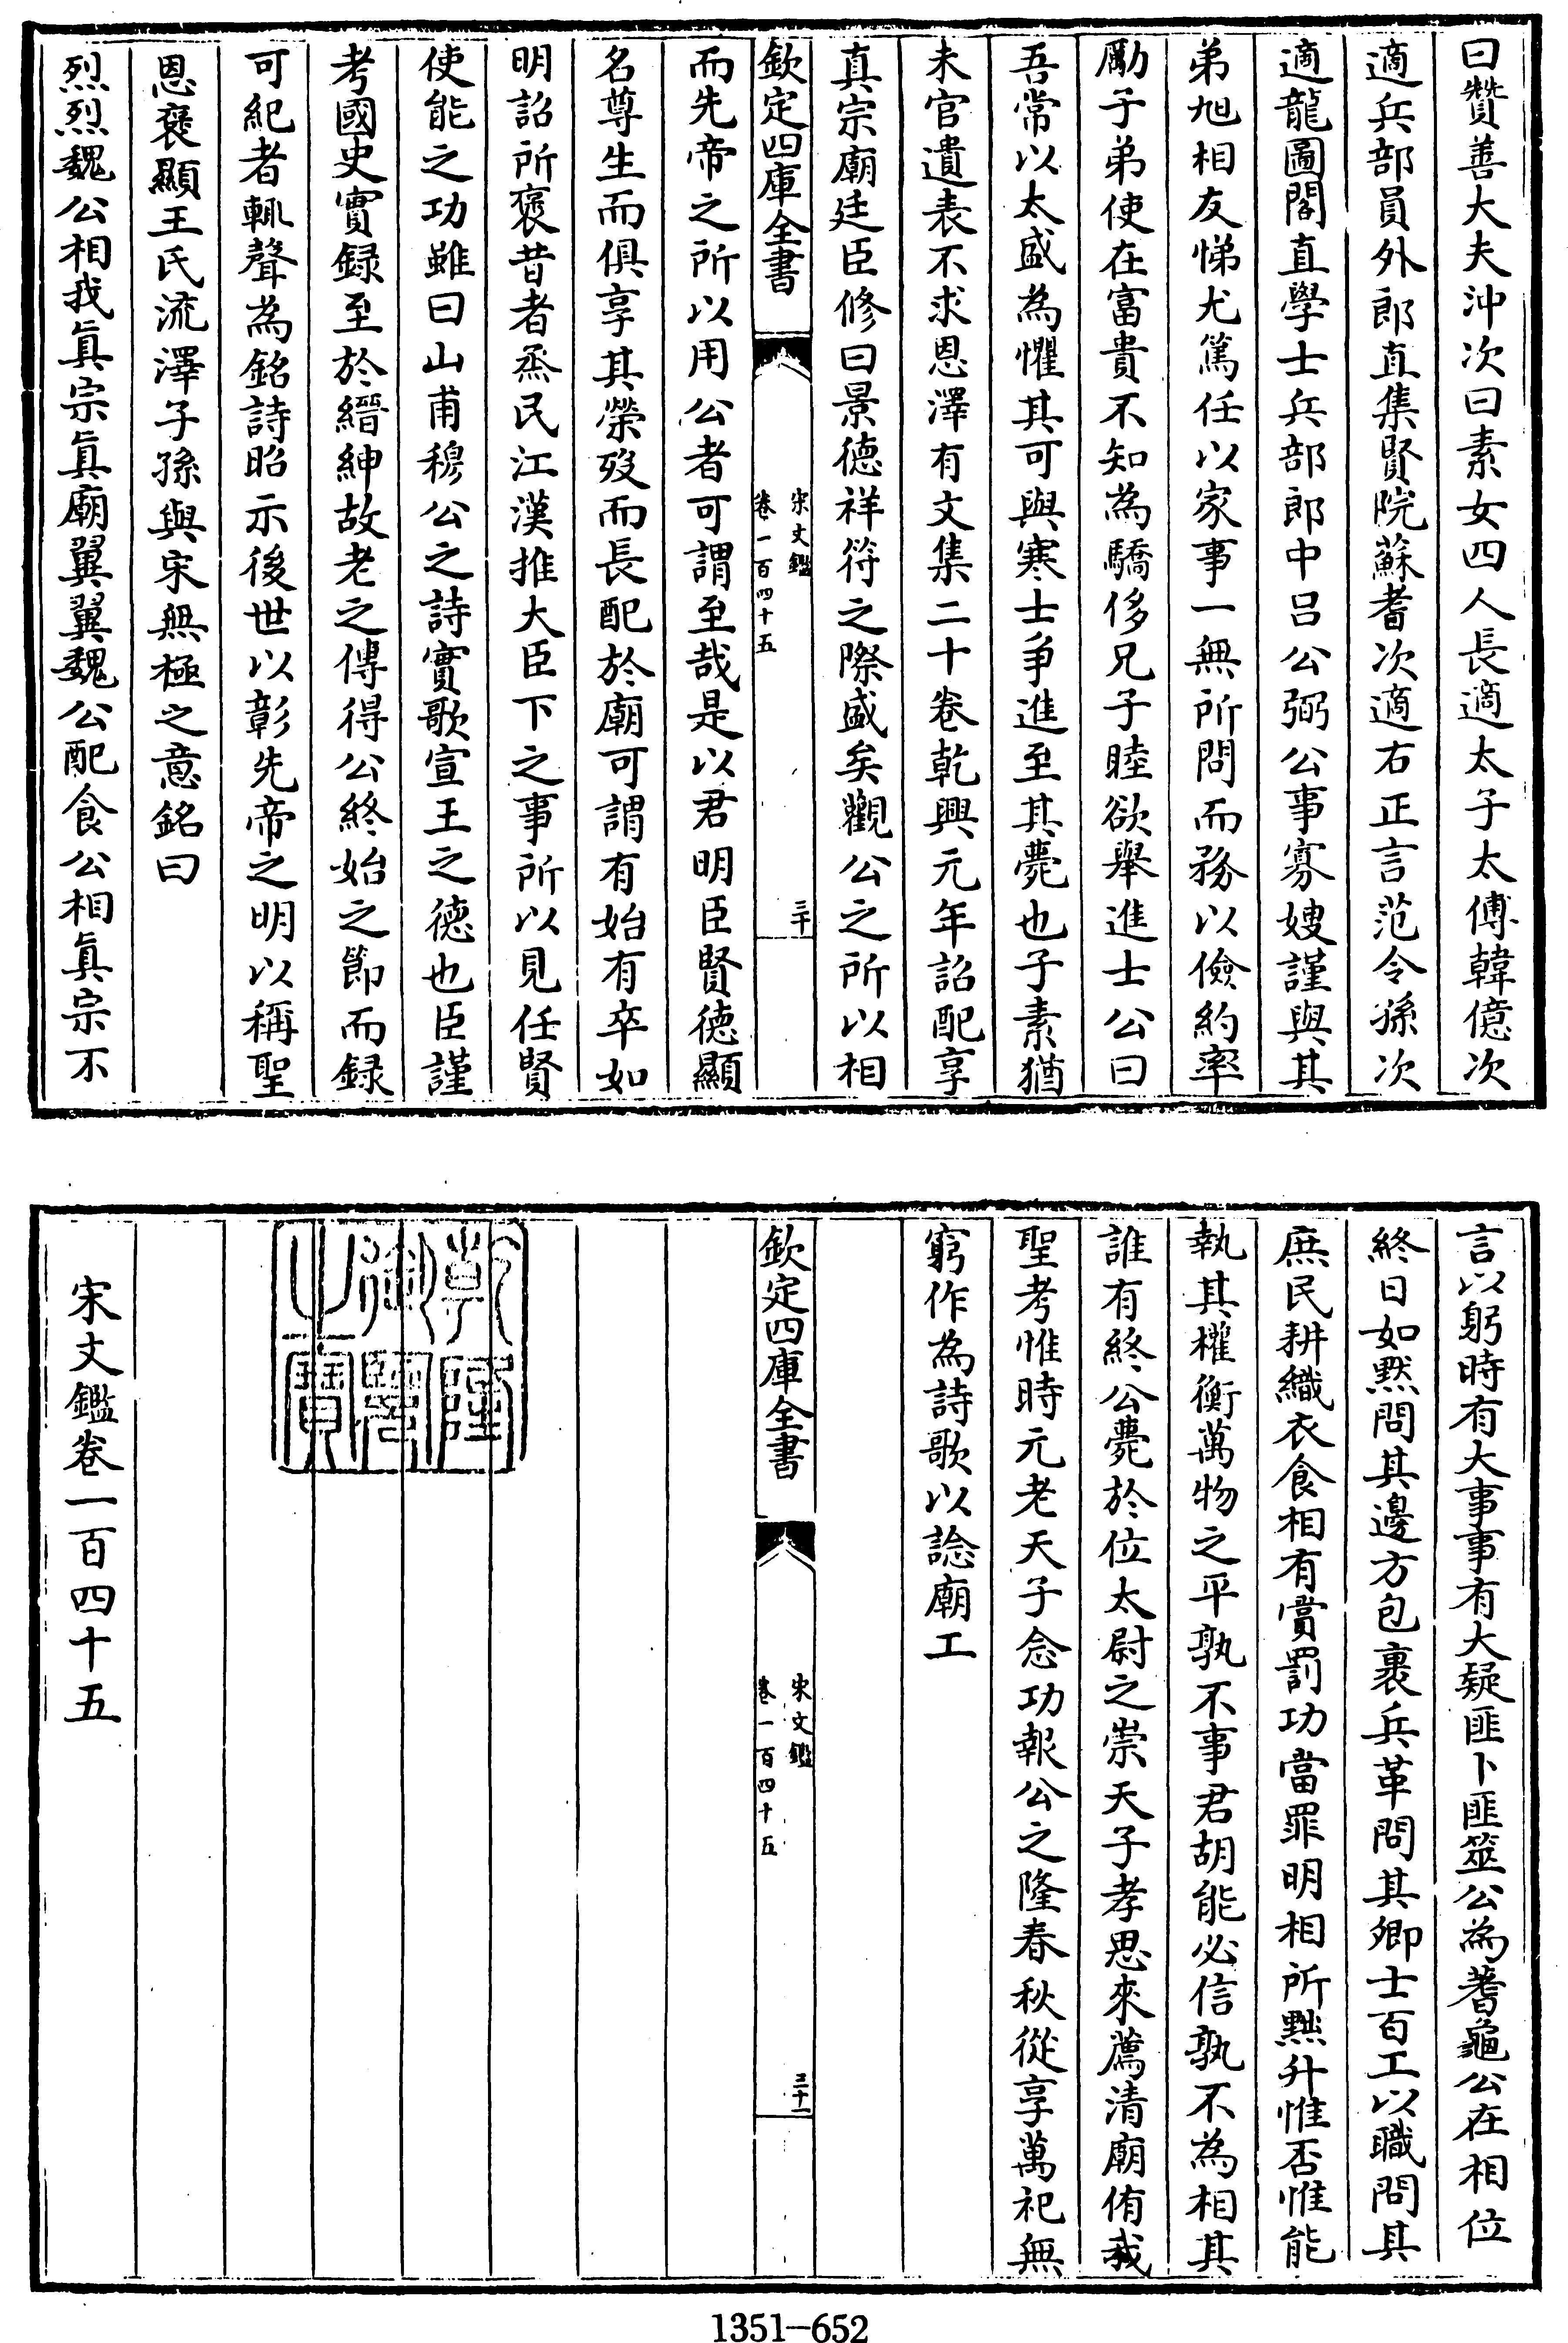 曰贊善大夫沖次曰素女四人長適太子太傅韓億次
適兵部員外郎直集賢院蘇耆次適右正言范令孫次
適龍圖閣直學士兵部郎中呂公弼公事寡嫂謹與其
弟旭相友悌尤篤任以家事一無所問而務以儉約率
勵子弟使在富貴不知為驕侈兄子睦欲舉進士公曰
吾常以太盛為懼其可與寒士爭進至其薨也子素猶
未官遺表不求恩澤有文集二十卷乾興元年詔配享
真宗廟廷臣修曰景德祥符之際盛矣觀公之所以相
欽定四庫全書
宋文鑑
卷一百四十五
三十
而先帝之所以用公者可謂至哉是以君明臣賢德顯
名尊生而俱享其榮歿而長配於廟可謂有始有卒如
明詔所褒昔者烝民江漢推大臣下之事所以見任賢
使能之功雖曰山甫穆公之詩實歌宣王之德也臣謹
考國史實録至於縉紳故老之傳得公終始之節而録
可紀者輒聲為銘詩昭示後世以彰先帝之明以稱聖
恩褒顯王氏流澤子孫與宋無極之意銘曰
烈烈魏公相我真宗真廟翼翼魏公配食公相真宗不
言以躬時有大事事有大疑匪卜匪筮公為蓍龜公在相位
終日如黙問其邊方包裹兵革問其卿士百工以職問其
庶民耕織衣食相有賞罰功當罪明相所黜升惟否惟能
執其權衡萬物之平孰不事君胡能必信孰不為相其
誰有終公薨於位太尉之崇天子孝思來薦清廟侑我
聖考惟時元老天子念功報公之隆春秋從享萬祀無
窮作為詩歌以諗廟工
欽定四庫全書
宋文鑑
卷一百四十五
三十一
乾隆御覽之寶
宋文鑑卷一百四十五
1351-652